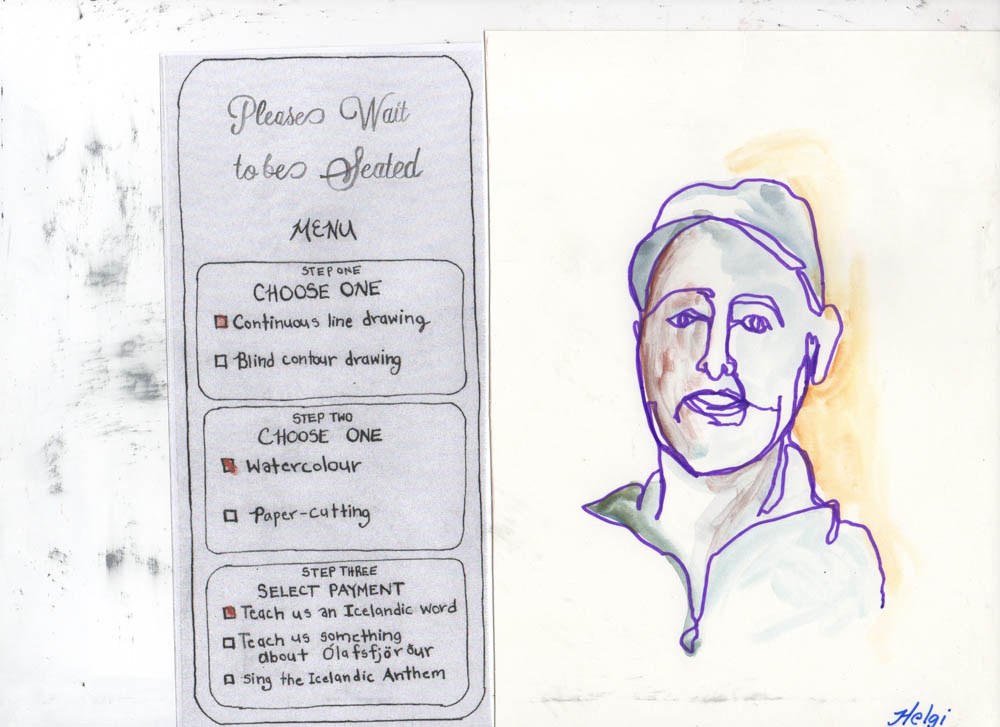 Please Wait
to be Seated
MENU
STEP ONE
CHOOSE ONE
Continuous line drawing
Blind contour drawing
STEP TWO
CHOOSE ONE
Watercolour
Paper-cutting
STEP THREE
SELECT PAYMENT
Teach us an Icelandic word
Teach us something
about Ólafsfjörður
Sing the Icelandic Anthem
Helgi